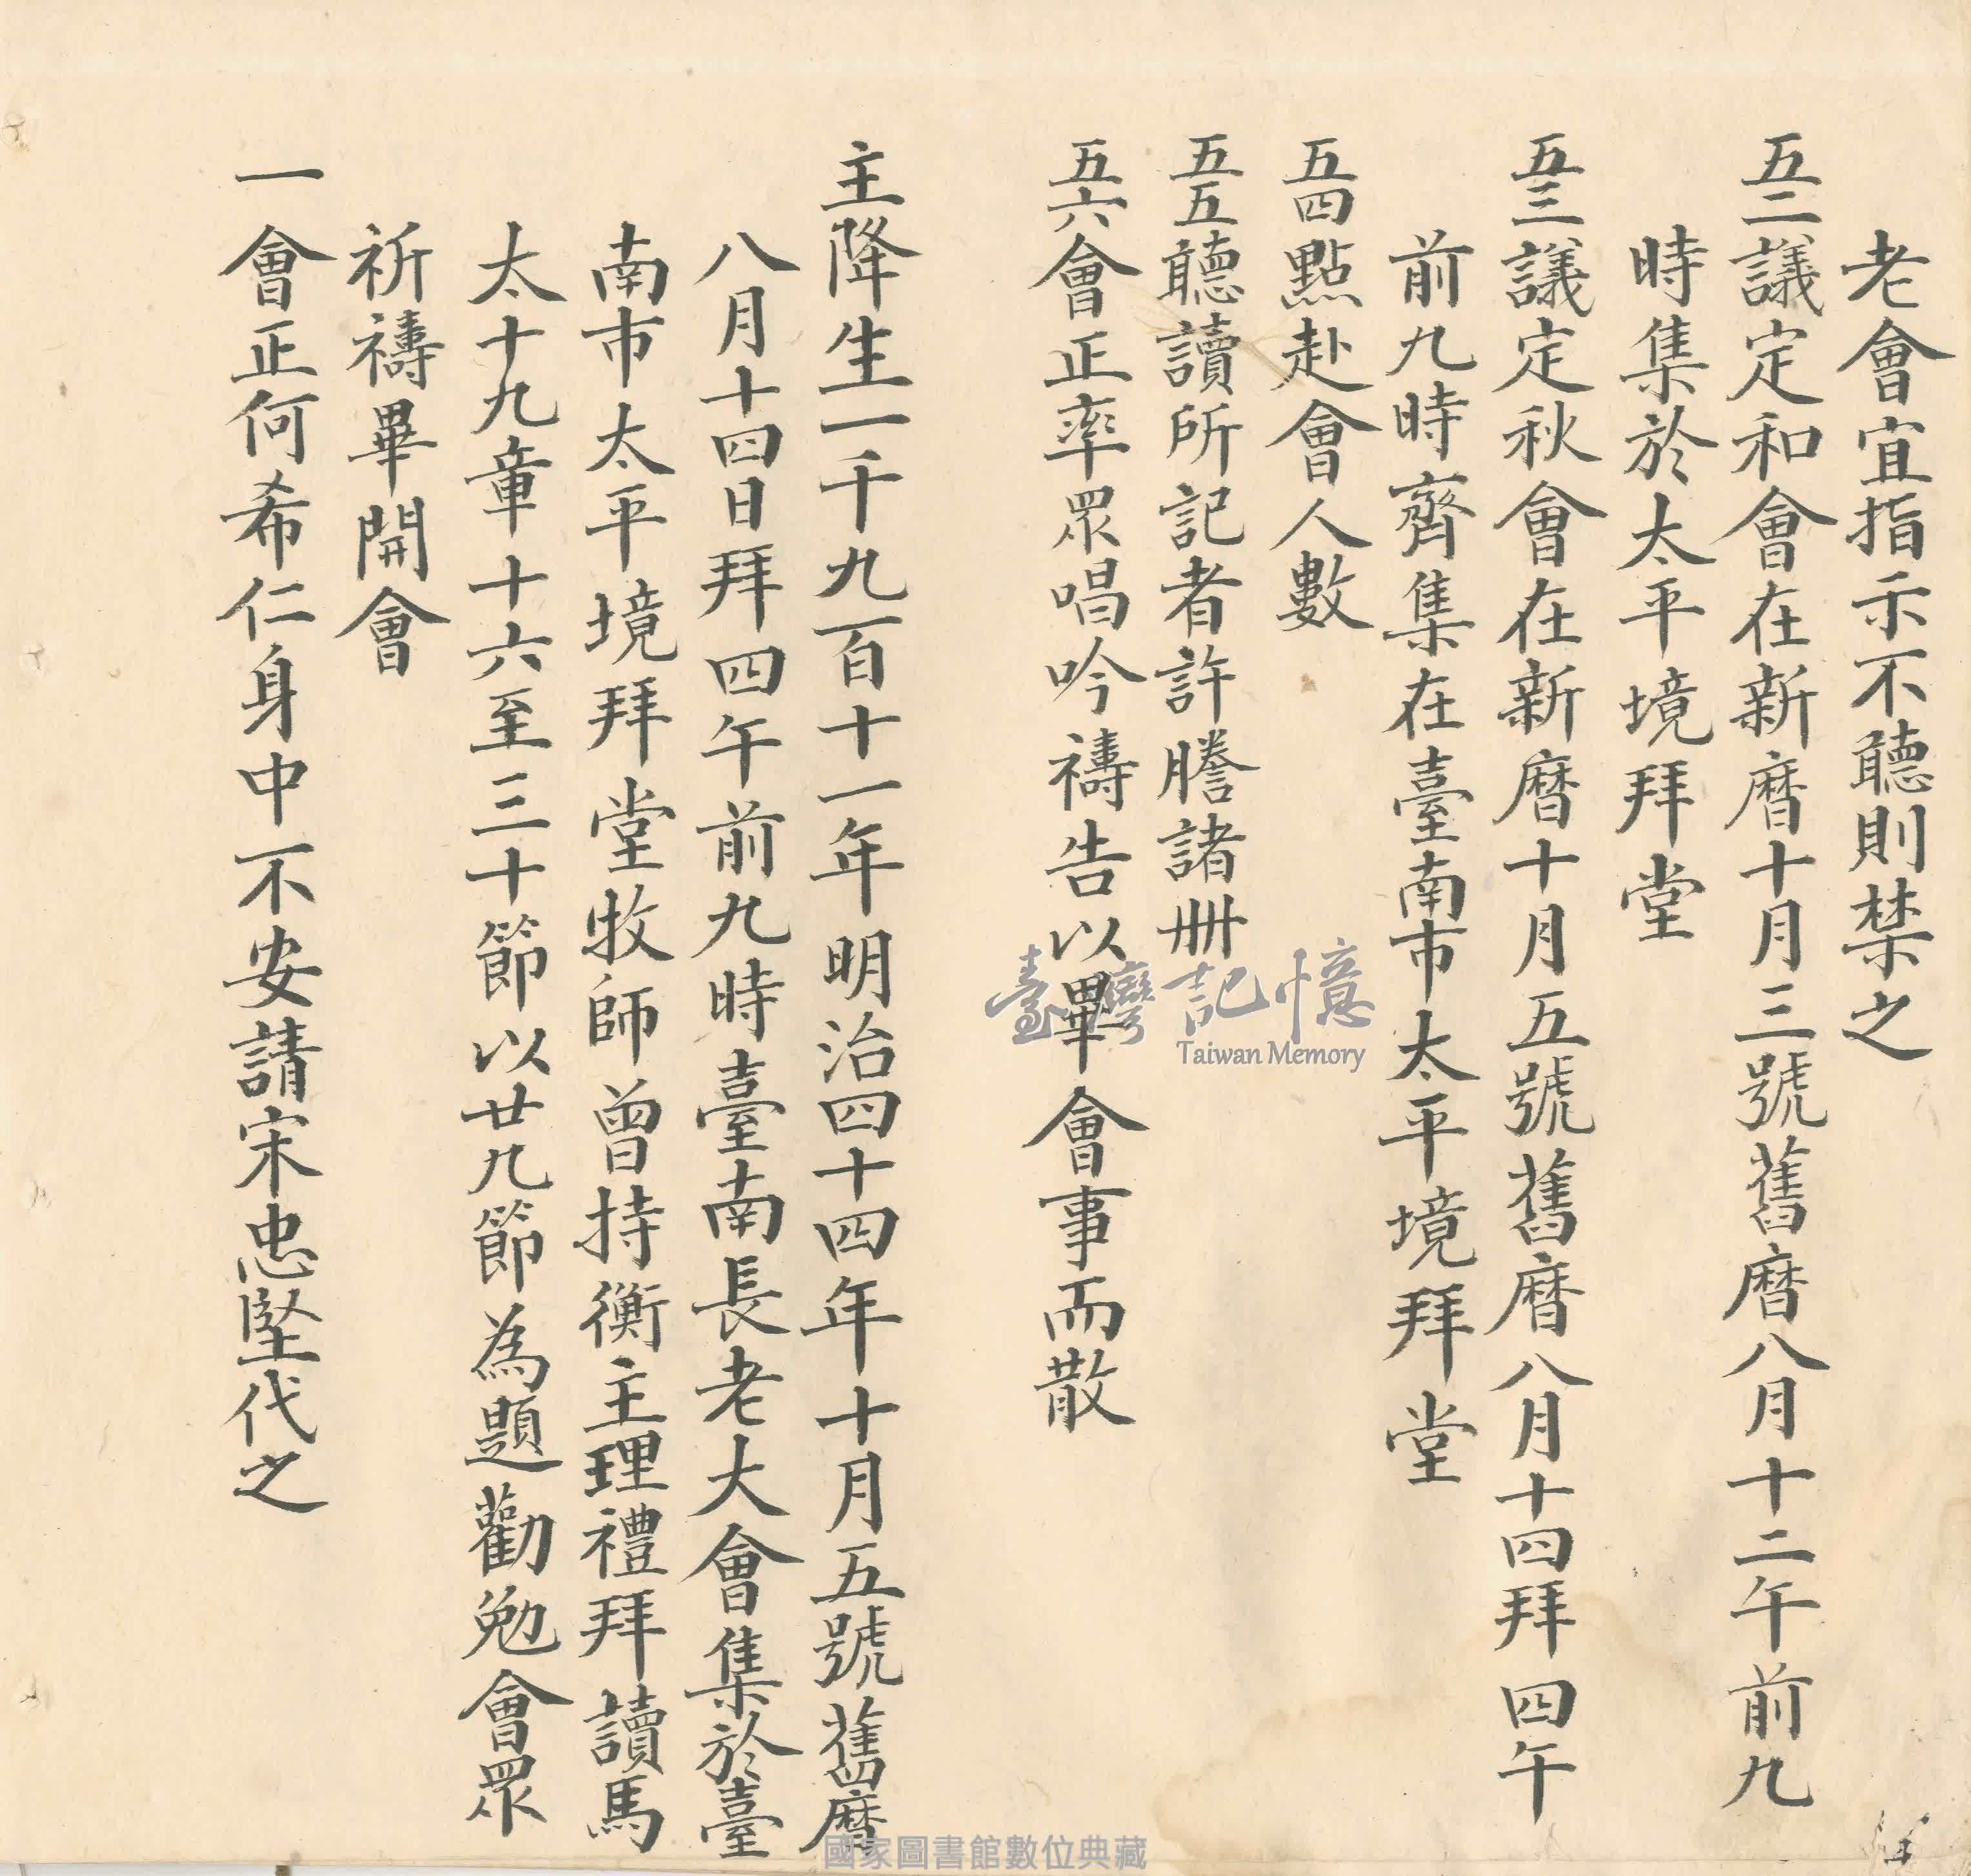 老會宜指示不聽則禁之
五二議定和會在新曆十月三號舊曆八月十二午前九
時集於太平境拜堂
五三議定秋會在新曆十月五號舊曆八月十四拜四午
前九時齊集在臺南市太平境拜堂
五四點赴會人數
五五聽讀所記者許謄諸冊
五六會正率眾唱吟禱告以畢會事而散
主降生一千九百十一年明治四十四年十月五號舊曆
八月十四日拜四午前九時臺南長老大會集於臺
南市太平境拜堂牧師曾持衡主理禮拜讀馬
太十九章十六至三十節以廿九節為題勸勉會眾
祈禱畢開會
一會正何希仁身中不安請宋忠堅代之
臺灣記憶
Taiwan Memory
國家圖書館數位典藏